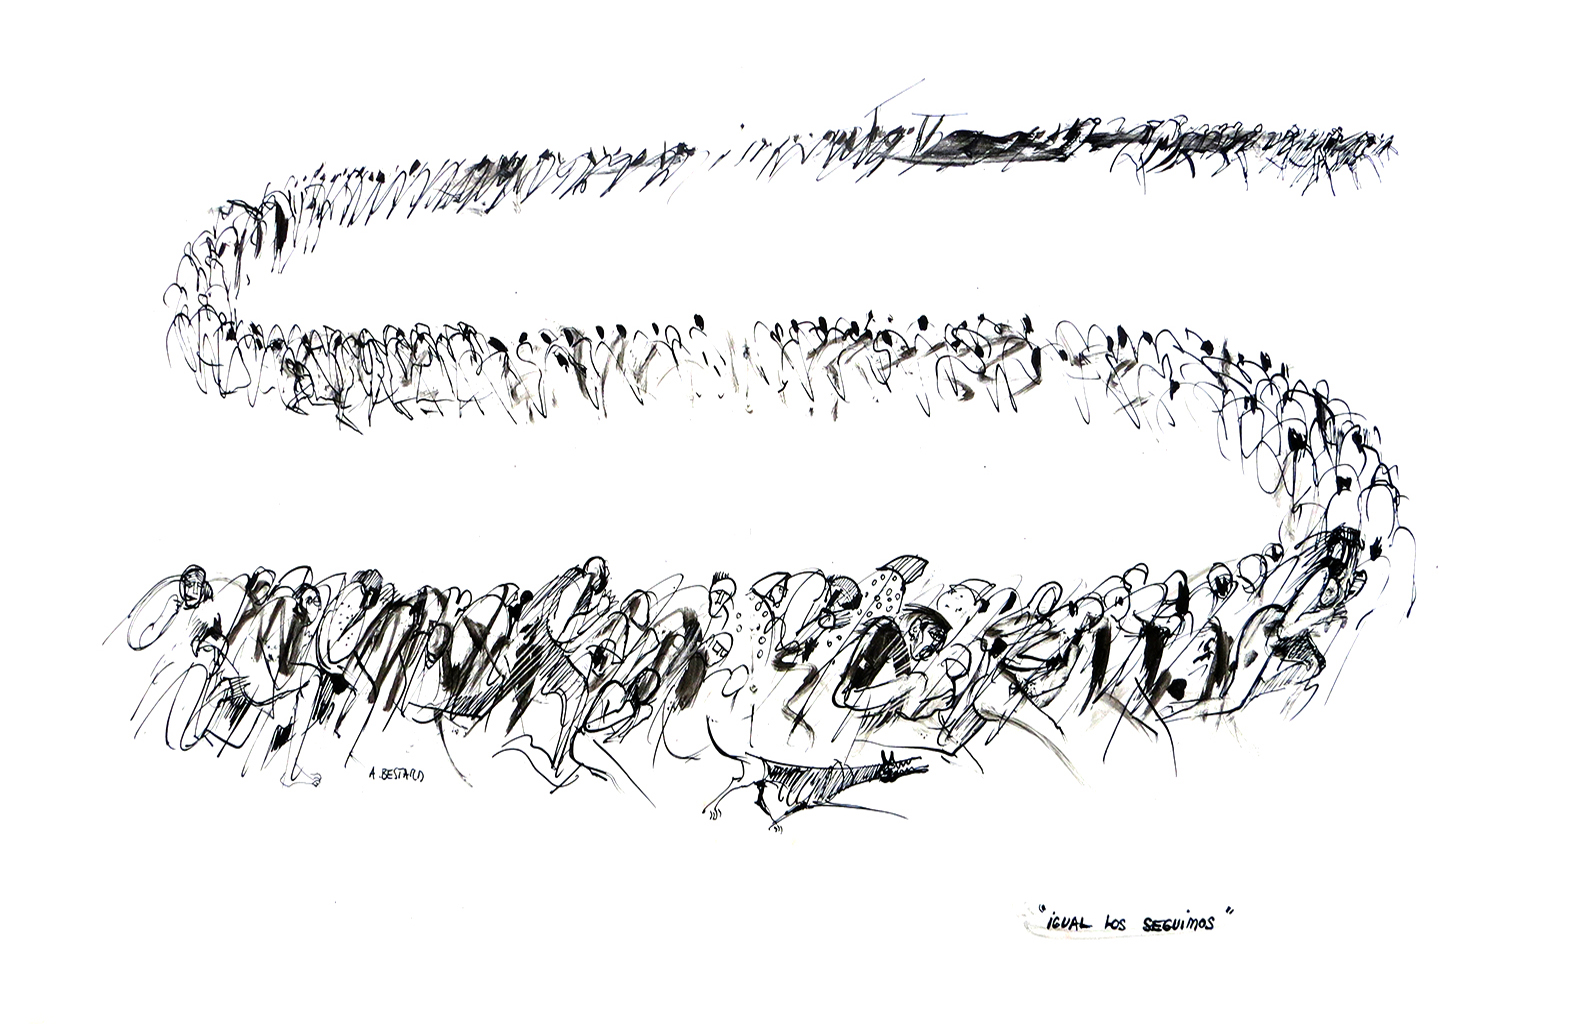 A. BESTARD
"IGUAL LOS SEGUIMOS"